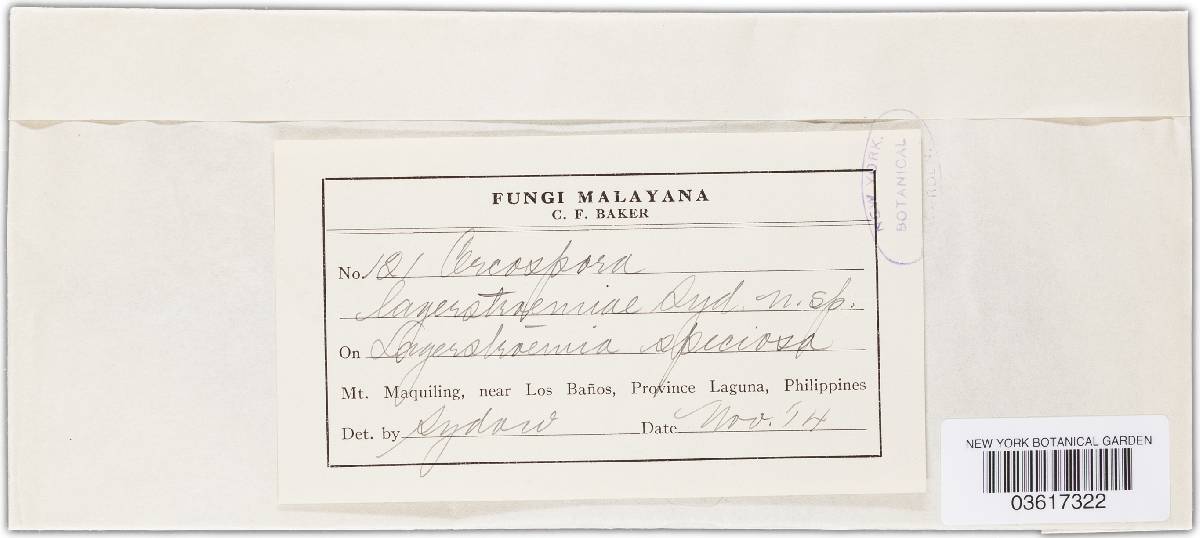 FUNGI MALAYANA
C. F. BAKER
No. 181 Cercospora
lagerstroemiae Syd. n. sp.
On Lagerstroemia speciosa
Mt. Maquiling, near Los Baños, Province Laguna, Philippines
Det. by Sydow Date Nov. '14
NEW YORK
BOTANICAL
NEW YORK BOTANICAL GARDEN
03617322